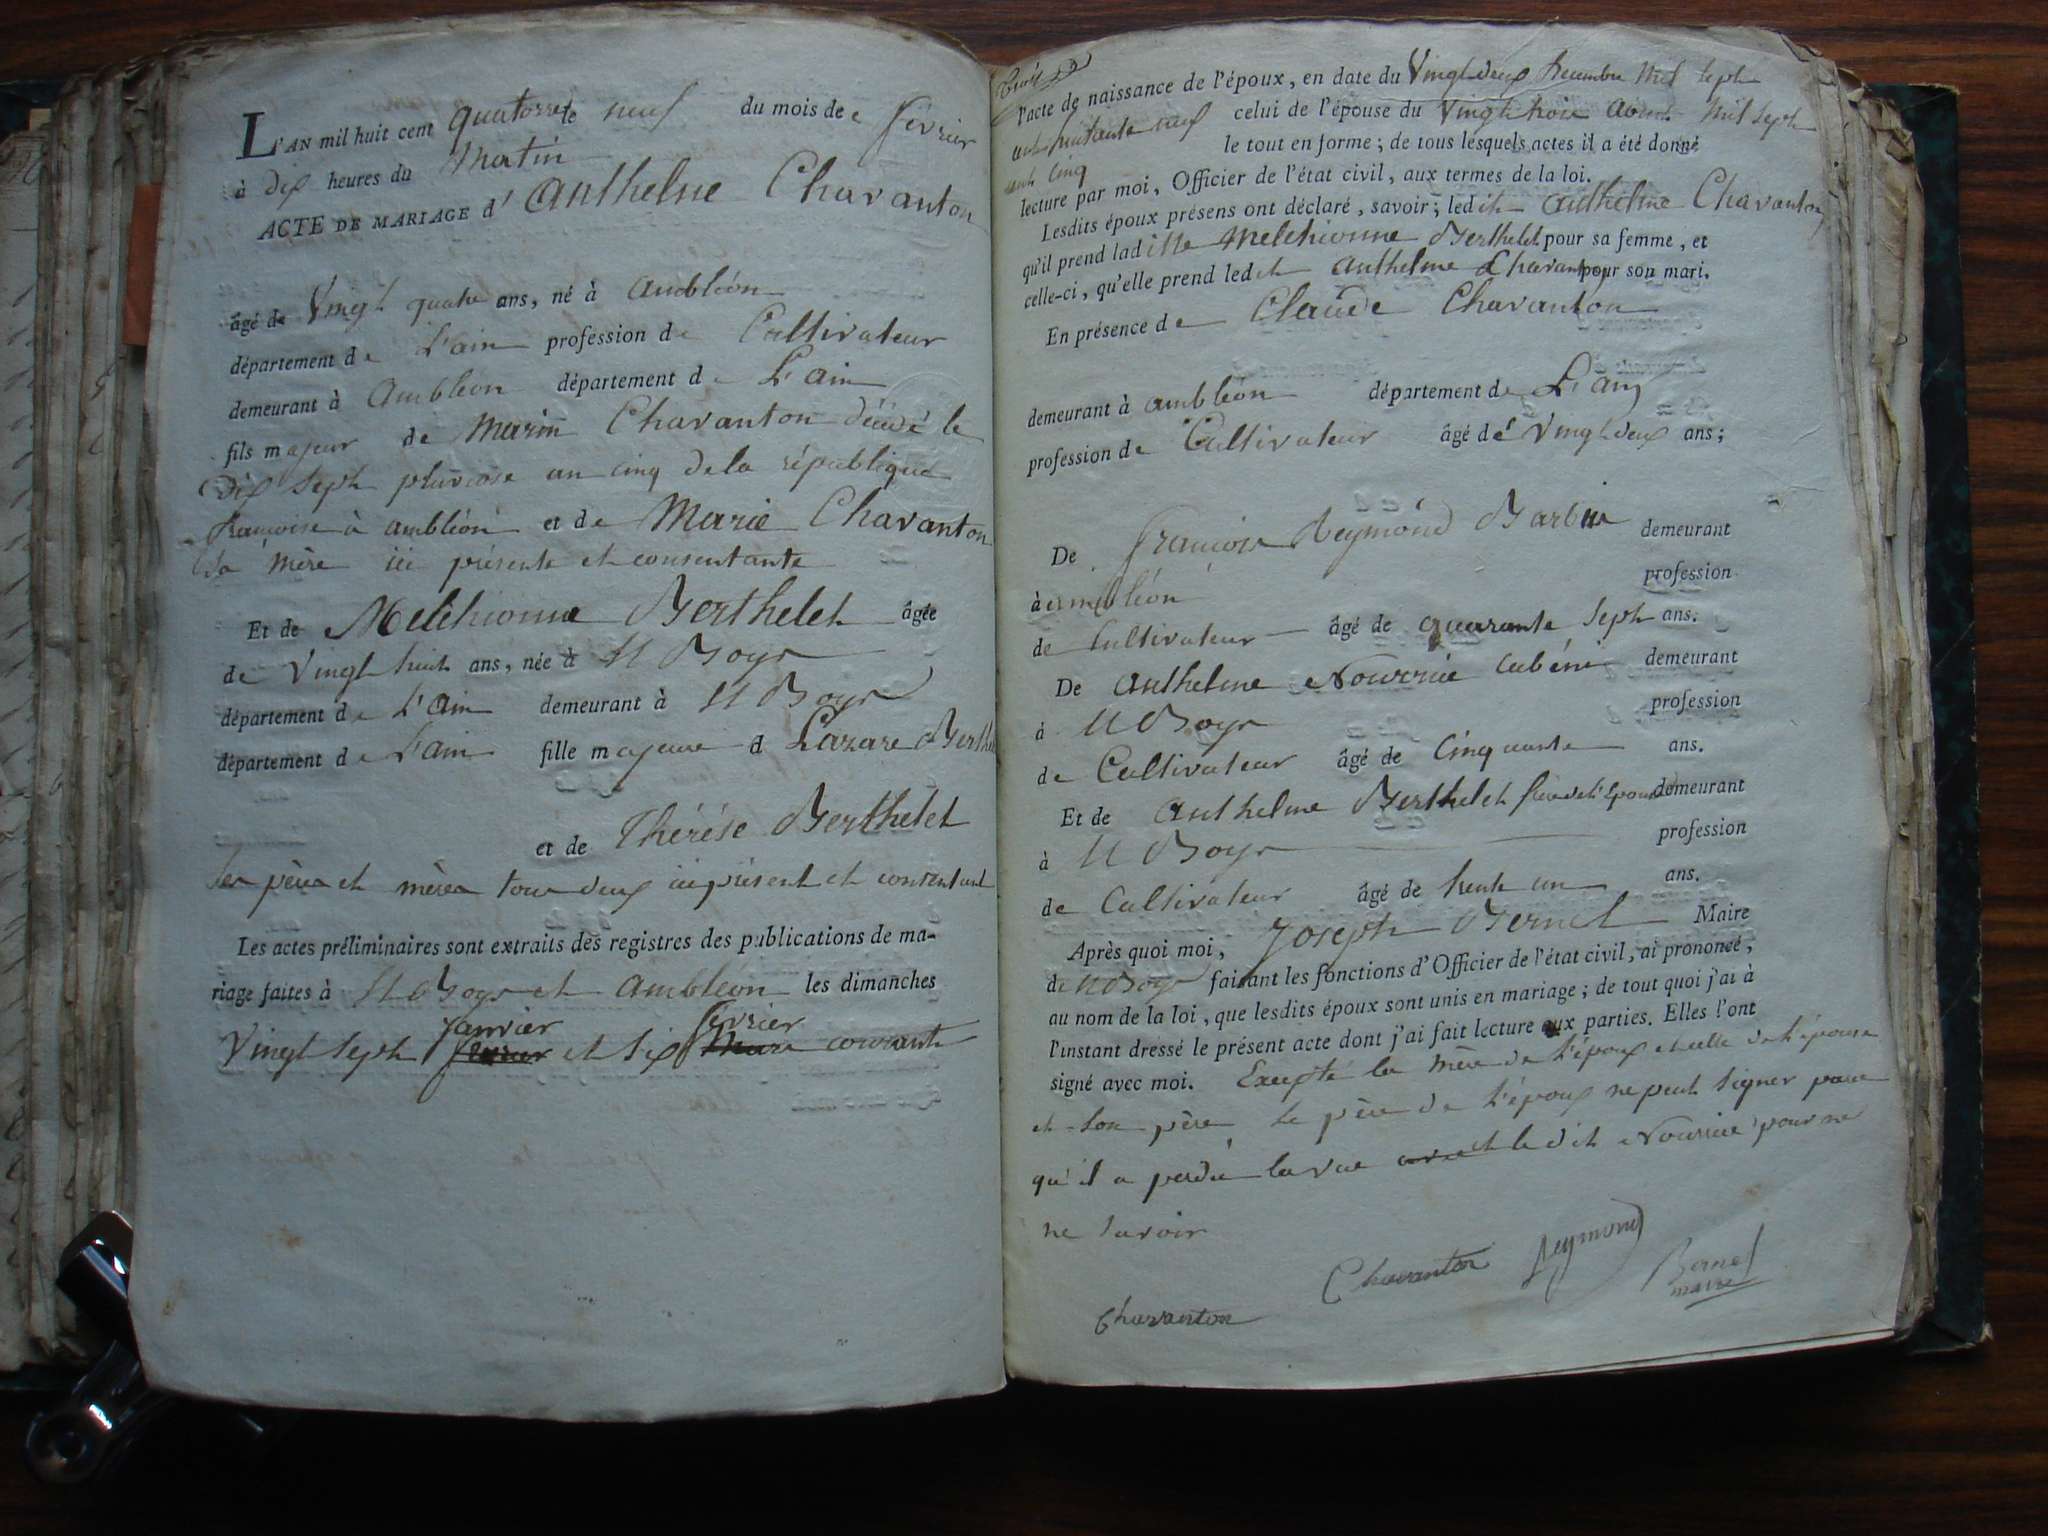 L'AN mil huit cent quatorze le neuf du mois de février
à dix heures du Matin
ACTE DE MARIAGE d' Anthelme Chavanton
âgé de Vingt quatre ans, né à ambléon
département de L'ain profession de Cultivateur
demeurant à Ambléon département de L'ain
fils majeur de Marin Chavanton décédé le
dix sept pluviose an cinq de la république
françoise à ambléon et de Marie Chavanton
Sa mère ici présente et consentante
Et de Melchionne Berthelet âgée
de Vingt huit ans, née à St Boys
département de L'ain demeurant à St Boys
département de L'ain fille majeure d Lazare Berthe
et de Thérése Berthelet
Ses père et mère tous deux ici présent et
Les actes préliminaires sont extraits des registres des publications de ma-
riage faites à St Boys et Ambléon les dimanches
janvier février
Vingt sept et Six courante
l'acte de naissance de l'époux, en date du Vingt deux Decembre Mil Sept
cent huitante neuf celui de l'épouse du Vingt trois Mil Sept
cent cinq
le tout en forme; de tous lesquels actes il a été donné
lecture par moi, Officier de l'état civil, aux termes de la loi.
Lesdits époux présens ont déclaré, savoir; ledit anthelme Chavanton
qu'il prend ladite Melchionne Berthelet pour sa femme, et
celle-ci, qu'elle prend ledit anthelme Chavanton pour son mari.
En présence de Claude Chavanton
demeurant à ambléon département de L'ain
profession de Cultivateur âgé de Vingt deux ans;
De françois Reymond Barbin demeurant
à ambléon profession
de Cultivateur âgé de quarante Sept ans.
De Anthelme Nourrice demeurant
à St Boys profession
de Cultivateur âgé de Cinquante ans.
Et de Anthelme Berthelet demeurant
à St Boys profession
de Cultivateur âgé de trente un ans.
Après quoi moi, Joseph Bernet Maire
de St Boys faisant les fonctions d'Officier de l'état civil, ai prononcé,
au nom de la loi, que lesdits époux sont unis en mariage; de tout quoi j'ai à
l'instant dressé le présent acte dont j'ai fait lecture aux parties. Elles l'ont
signé avec moi. Excepté la mère de L'époux et celle de L'épouse
et Son père Le père de L'époux ne peut Signer parce
qu'il a perdu la vue et le dit Nourrice pour ne
ne Savoir
Chavanton Reymond Bernet
maire
Chavanton